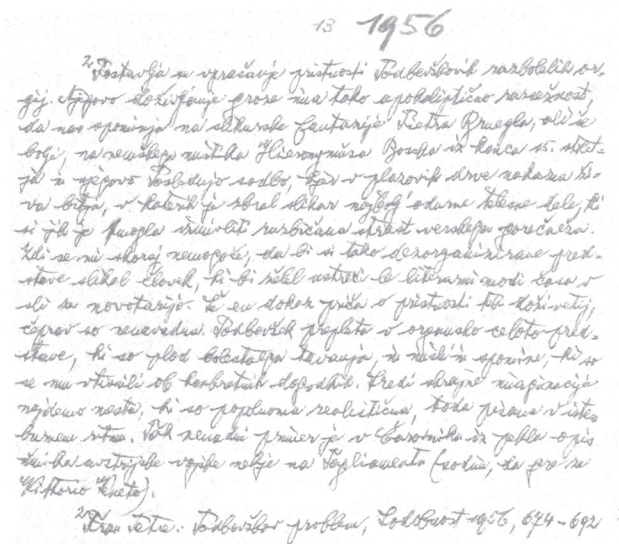 13 1956
2 Postavlja se vprašanje pristnosti Podbevškovih razbolelih or-
gij. Njegovo doživljanje groze ima tako apokaliptično razsežnost,
da nas spominja na slikarske fantazije Pietra Bruegla, ali še
bolj, na nemškega mistika Hieronymusa Boscha iz konca 15. stolet-
ja in njegovo Poslednjo sodbo, kjer v plazovih drve nakazna ži-
va bitja, v katerih je zbral slikar najbolj odurne telesne dele, ki
si jih je mogla izmisliti razbičana strast verskega gorečneža.
Zdi se mi skoraj nemogoče, da bi si tako dezorganizirane pred-
stave slikal človek, ki bi želel ustreči le literarni modi časa v
sli za novotarijo. Še en dokaz priča o pristnosti teh doživetij,
čeprav so nenavadna. Podbevšek prepleta v organsko celoto pred-
stave, ki so plod bolestnega tavanja, in misli in spomine, ki so
se mu vtisnili ob konkretnih dogodkih. Sredi skrajne imaginacije
najdemo mesta, ki so popolnoma realistična, toda pisana v iste-
burnem ritmu. Tak nenadni primer je v Čarovniku iz pekla opis
umika avstrijske vojske nekje na Tagliamentu (sodim, da gre za
Vittorio Veneto).
2 Fran Petre: Podbevškov problem, Sodobnost 1956, 674-692